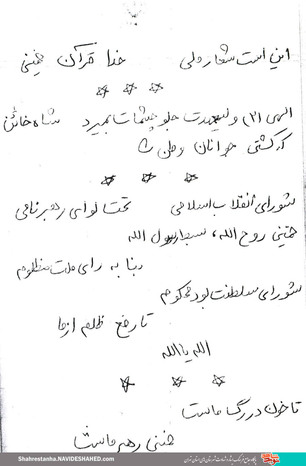 این است شعار ملی خدا قرآن خمینی
الهی (۳) ولیعهدت جلو چشمات بمیرد شاه خائن
که کشتی جوانان وطن را
شورای انقلاب اسلامی تحت لوای رهبر نامی
خمینی روح الله، سید رسول الله
بنا به رای ملت مظلوم
شورای سلطنت بود محکوم
تا رفع ظلم از ما
الله یا الله
تا خون در رگ ماست
خمینی رهبر ماست
Shahrestanha.NAVIDESHAHED.com